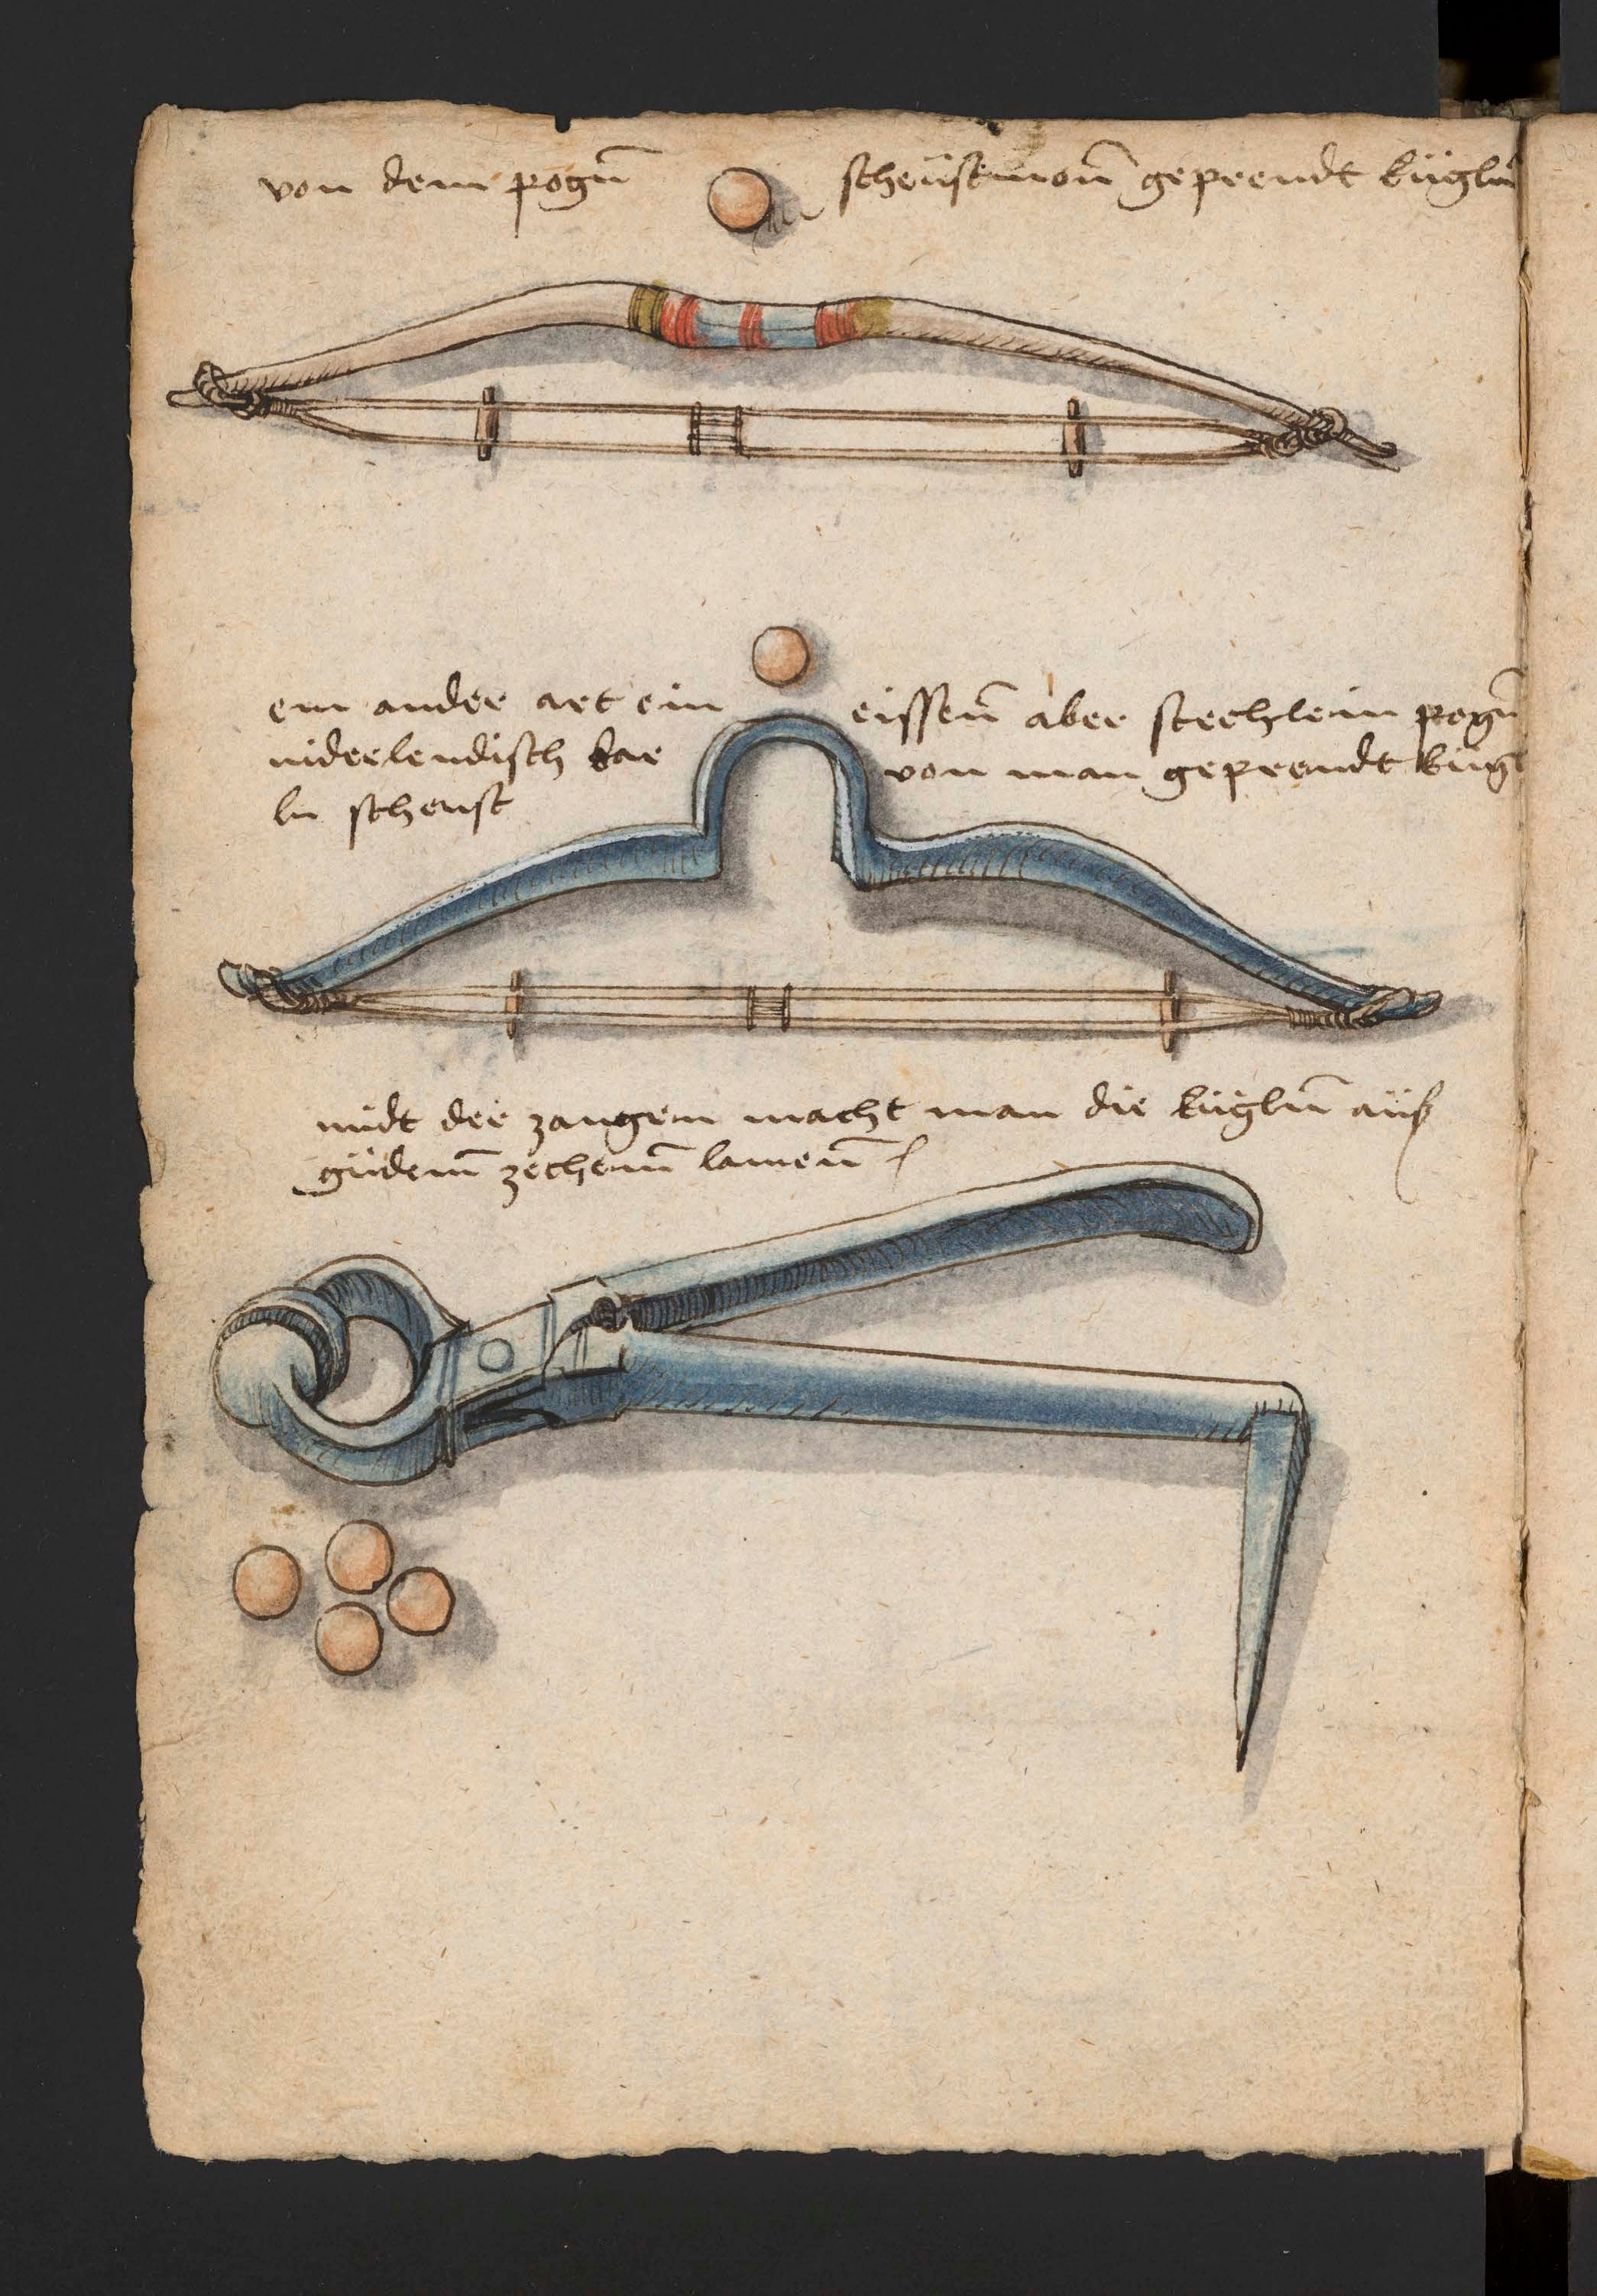 von dem pogñ scheüst mon̄ geprendt küglñ
ein ander art ein eissen̄ aber stechlein pogñ
niderlendisch dar von man geprendt kügl
ln scheust
midt der zangen macht man die küglin̄ auß
güdem̄ zechem̄ lamen̄